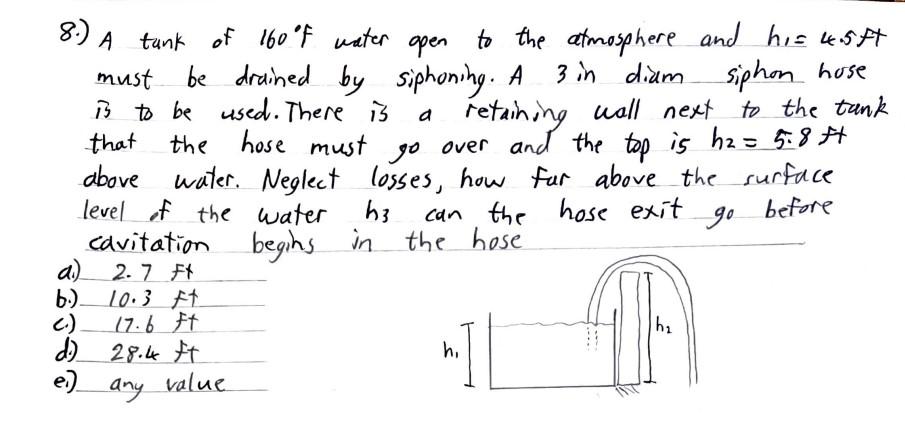 8.) A tank of 160°F water open to the atmosphere and h1 = 4.5 ft
must be drained by siphoning. A 3 in diam siphon hose
is to be used. There is a retaining wall next to the tank
that the hose must go over and the top is h2 = 5.8 ft
above water. Neglect losses, how far above the surface
level of the water h3 can the hose exit go before
cavitation begins in the hose
a.) 2.7 ft
b.) 10.3 ft
c.) 17.6 ft
d.) 28.4 ft
e.) any value
h1
h2